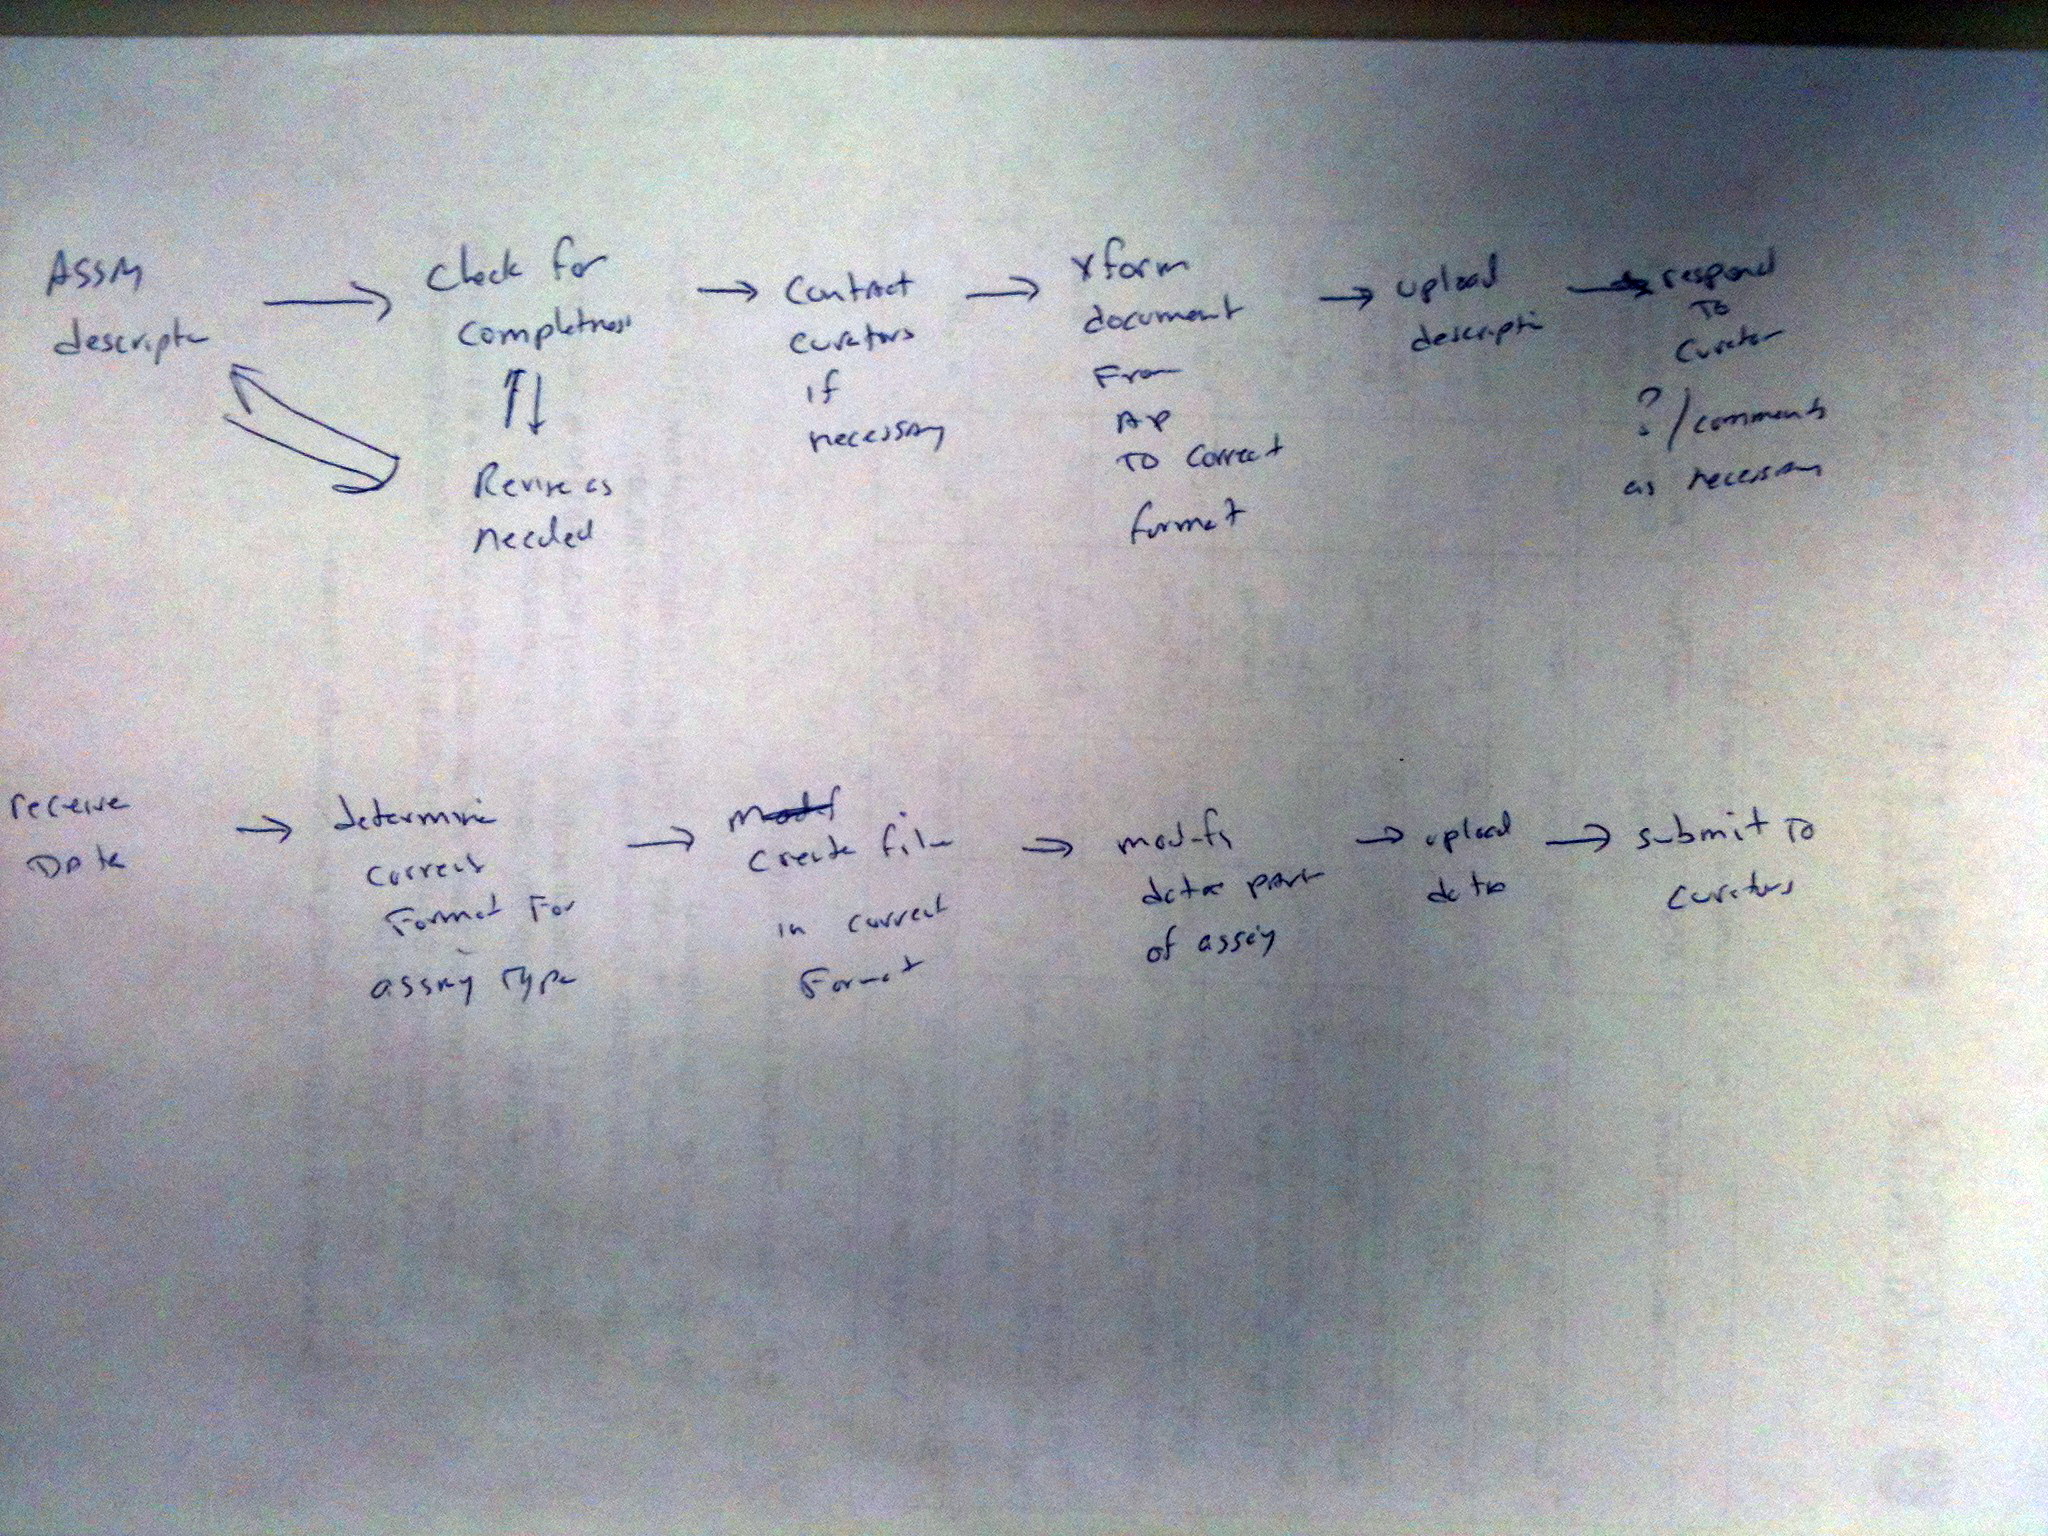 Assay
descriptn
Check for
completness
Revise as
needed
Contact
curators
if
necessary
Xform
document
From
AP
TO correct
format
upload
descripti
respond
TO
Curator
? / comments
as necessary
receive
Data
determine
correct
Format For
assay Type
modif
create file
in correct
Format
modify
data part
of assay
upload
data
submit TO
curators